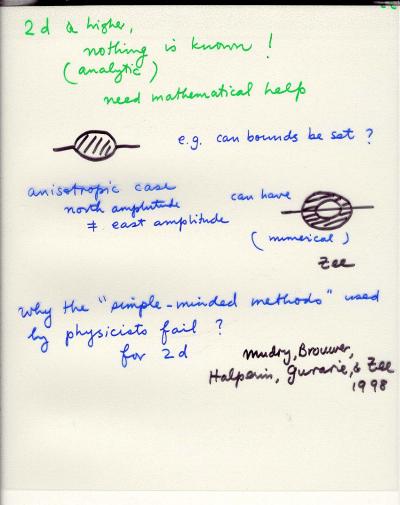 2 d & higher,
nothing is known !
(analytic)
need mathematical help
e.g. can bounds be set ?
anisotropic case
north amplitude
≠ east amplitude
can have
(numerical)
Zee
why the "simple-minded methods" used
by physicists fail ?
for 2 d
Mudry, Brouwer,
Halperin, Gurarie, & Zee
1998